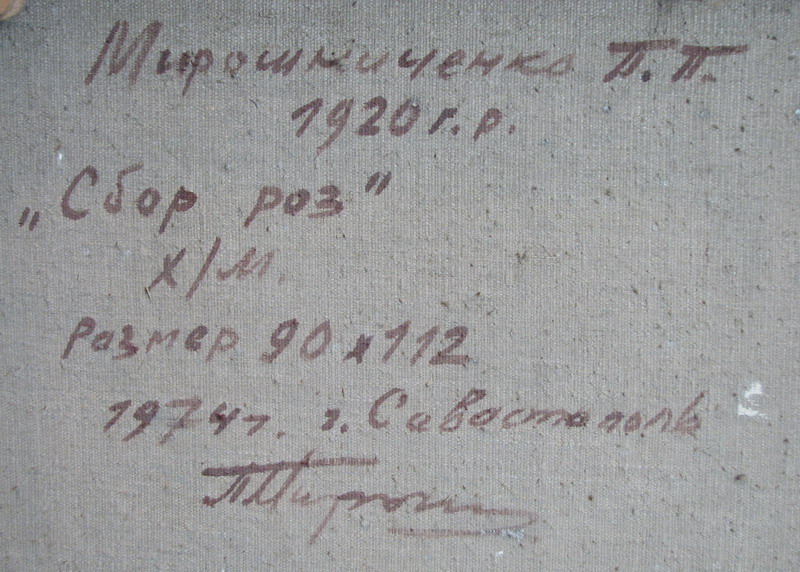 Мирошниченко П.П.
1920 г.р.
„Сбор роз"
х/м.
размер 90 х 112
1974г. г. Севастополь